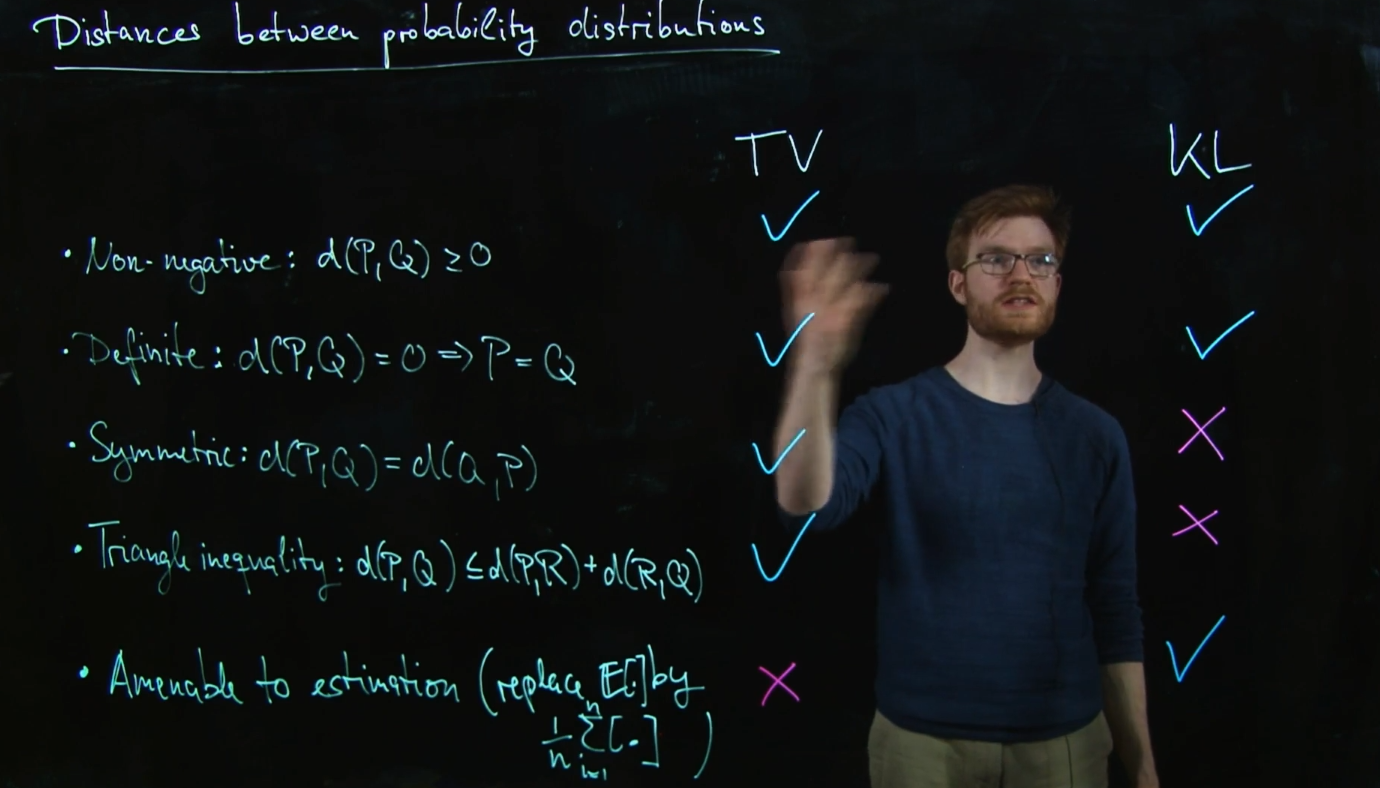 Distances between probability distributions
TV KL
✓ ✓
• Non-negative: d(P,Q) ≥ 0
• Definite: d(P,Q) = 0 ⇒ P = Q ✓ ✓
• Symmetric: d(P,Q) = d(Q,P) ✓ ✗
• Triangle inequality: d(P,Q) ≤ d(P,R) + d(R,Q) ✓ ✗
• Amenable to estimation (replace E[.] by ✗ ✓
1/n Σ_{i=1}^{n} [.] )